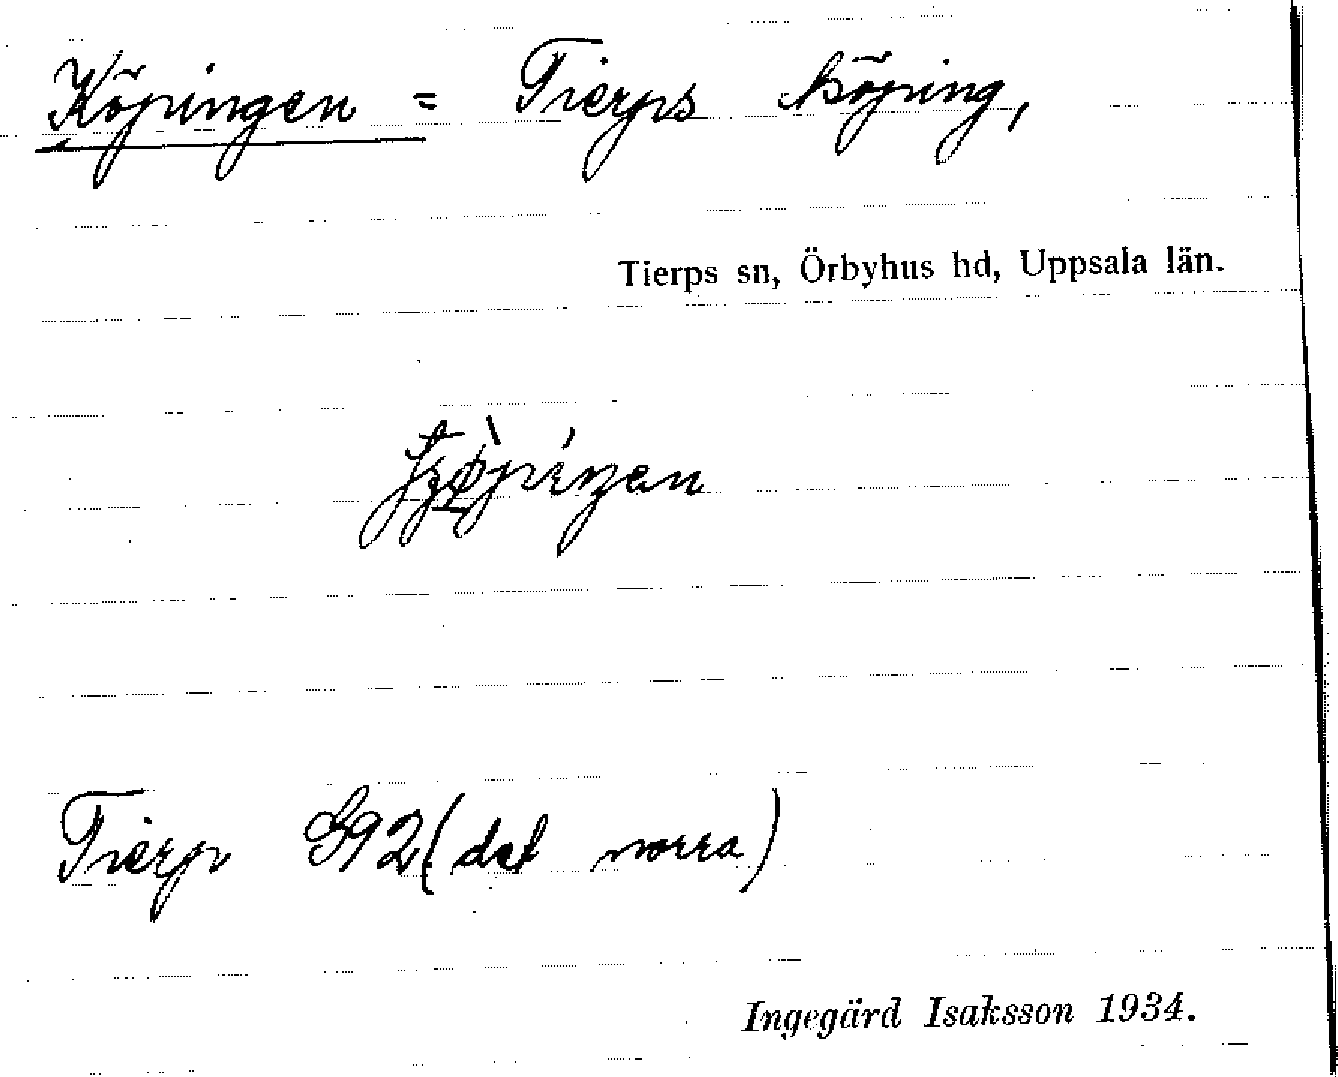 Köpingen = Tierps köping,
Tierps sn, Örbyhus hd, Uppsala län.
Tierp G92 (det norra)
Ingegärd Isaksson 1934.